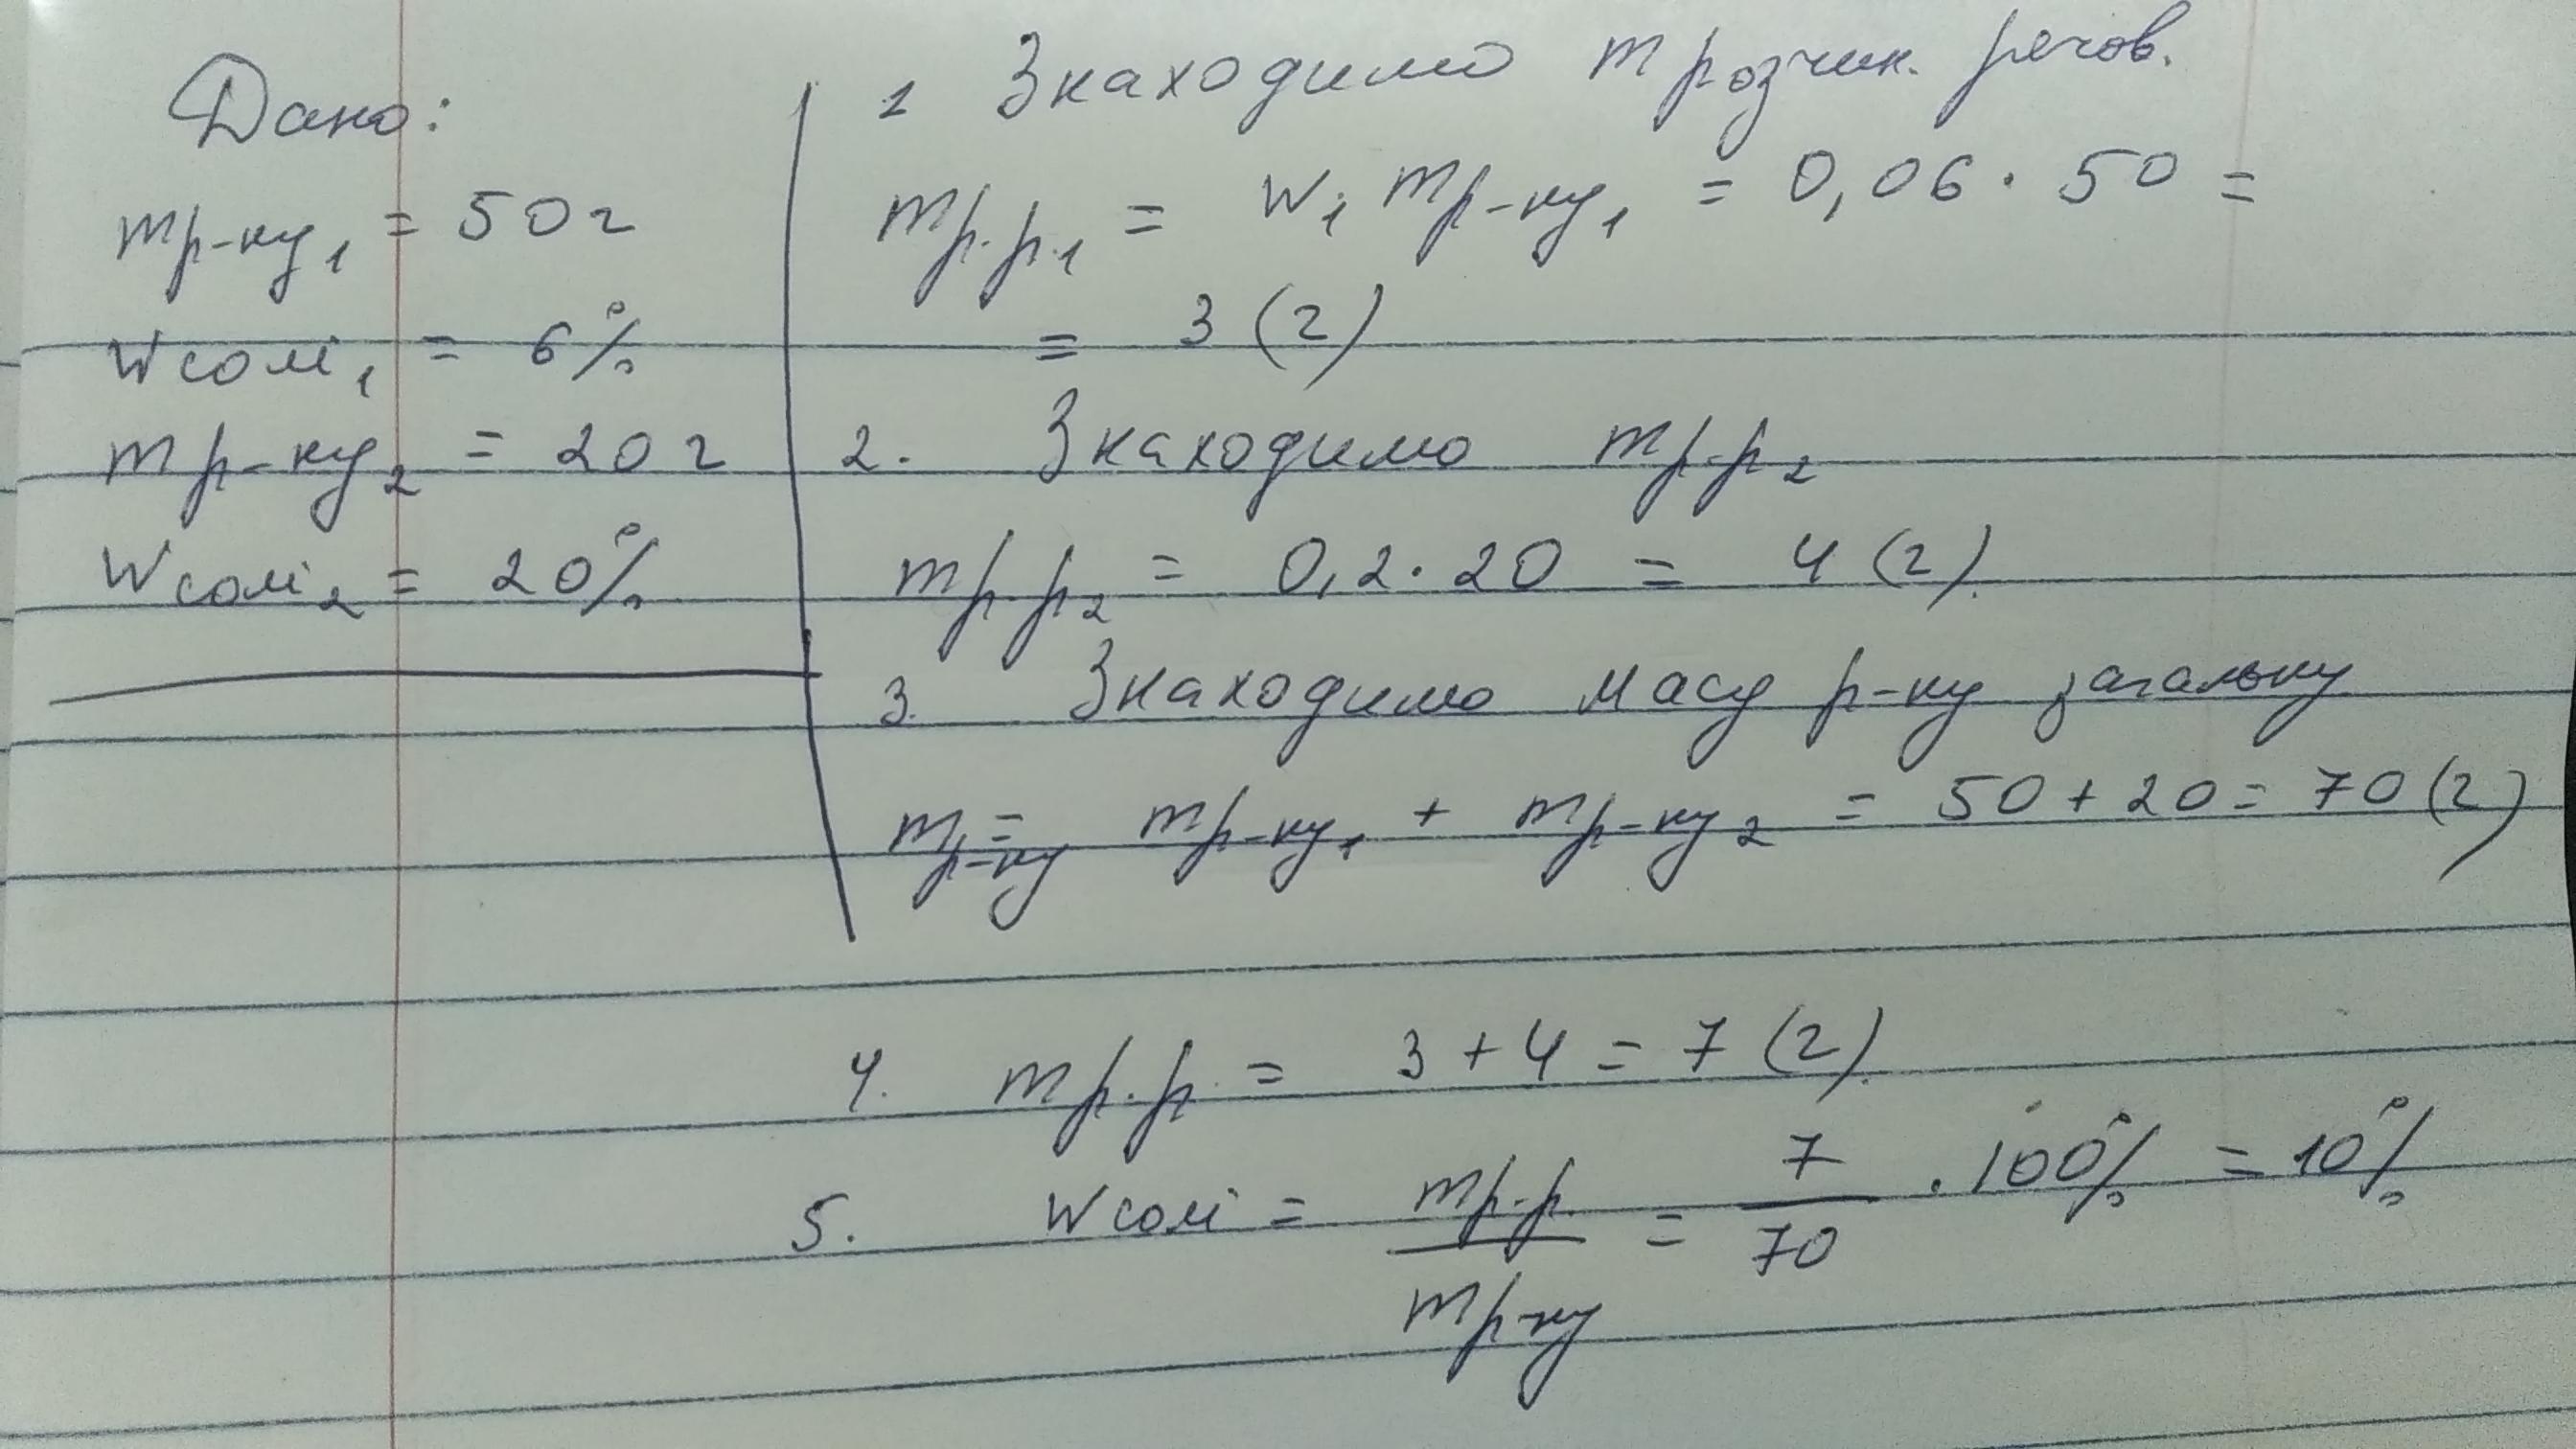 Дано:
mр-ну₁ = 50 г
Wсолі₁ = 6%
mр-ну₂ = 20 г
Wсолі₂ = 20%
1 Знаходимо m розчин. речов.
mр.р.₁ = W₁ mр-ну₁ = 0,06 · 50 =
= 3 (г)
2. Знаходимо mр.р₂
mр.р₂ = 0,2 · 20 = 4 (г).
3. Знаходимо масу р-ну загальну
mр-ну = mр-ну₁ + mр-ну₂ = 50 + 20 = 70 (г)
4. mр.р. = 3 + 4 = 7 (г).
5. Wсолі = mр.р. / mр-ну = 7 / 70 · 100% = 10%